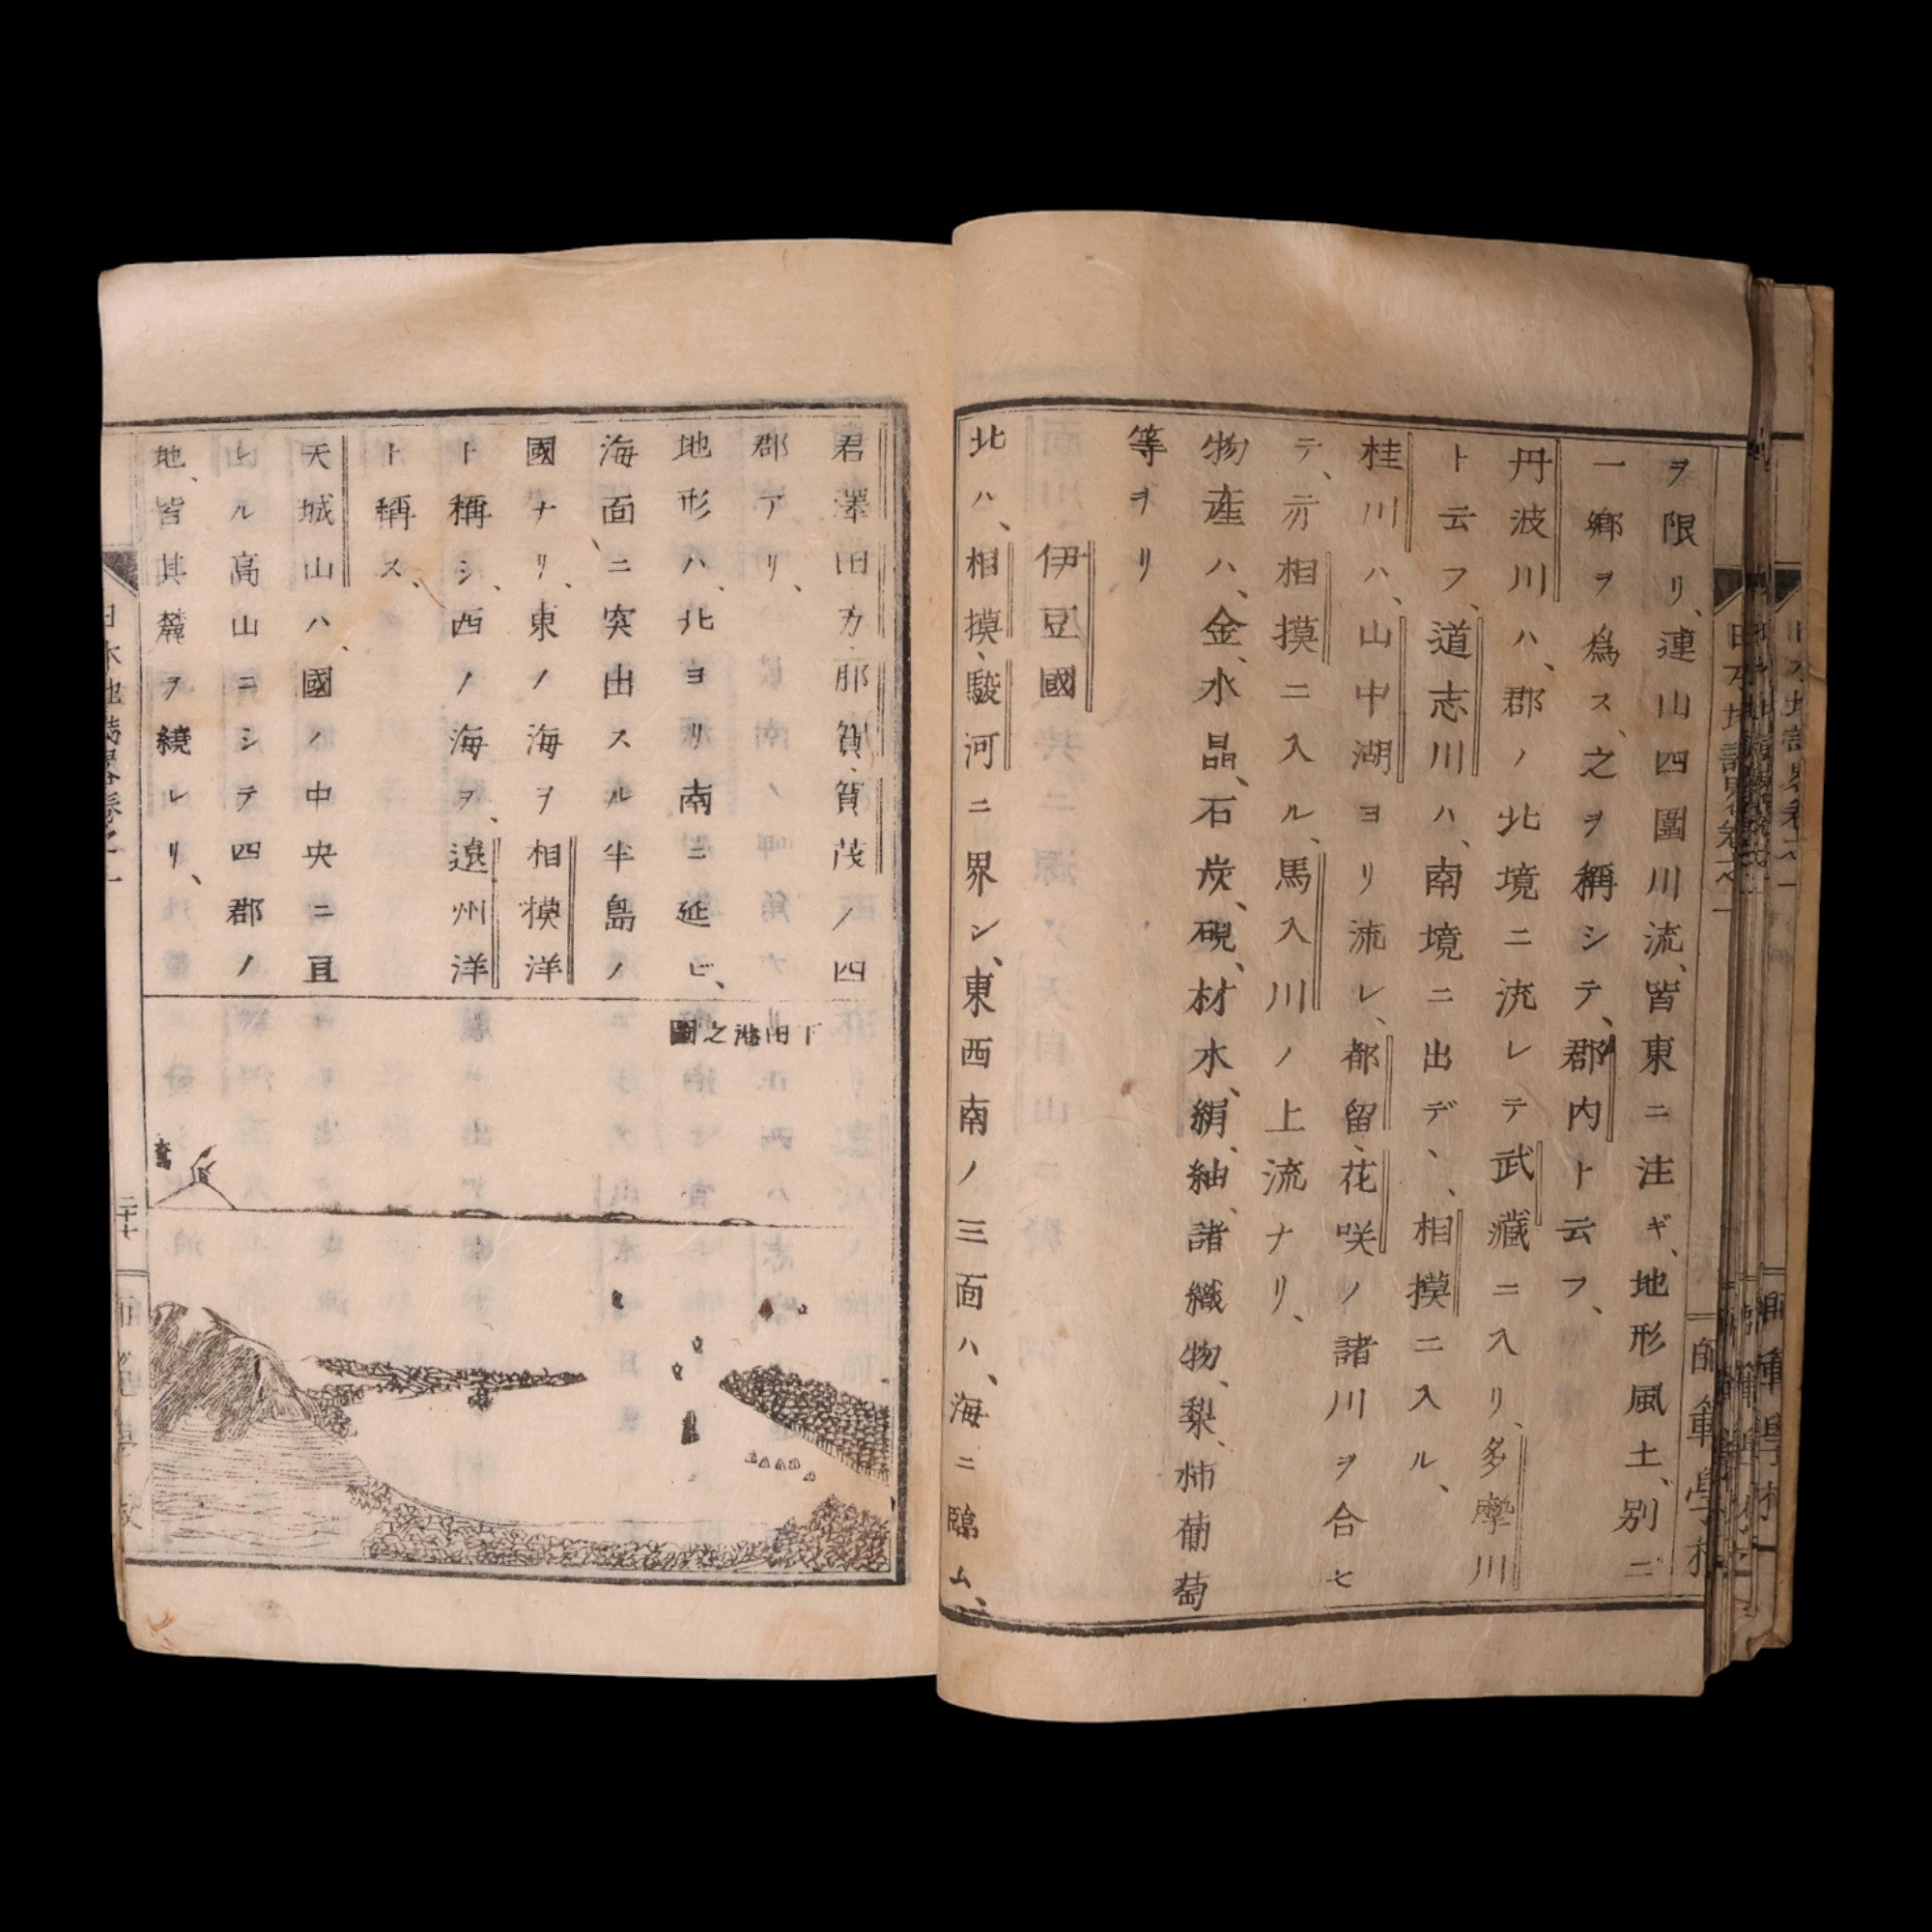 ヲ限リ、連山四圍川流、皆東ニ注ギ、地形風土、別ニ
一鄉ヲ為ス、之ヲ稱シテ、郡内ト云フ、
丹波川ハ、郡ノ北境ニ流レテ武藏ニ入リ、多摩川
ト云フ、道志川ハ、南境ニ出デ、、相摸ニ入ル、
桂川ハ、山中湖ヨリ流レ、都留、花咲ノ諸川ヲ合セ
テ、亦相摸ニ入ル、馬入川ノ上流ナリ、
物産ハ、金、水晶、石炭、硯、材木、絹、紬、諸織物、梨、柿葡萄
等ヲリ
伊豆國
北ハ、相摸、駿河ニ界シ、東西南ノ三面ハ、海ニ臨ム、
君澤田方、那賀、賀茂ノ四
郡アリ、
地形ハ、北ヨリ南ニ延ビ、
海面ニ突出スル半島ノ
國ナリ、東ノ海ヲ相模洋
ト稱シ、西ノ海ヲ、遠州洋
ト稱ス、
天城山ハ、國ノ中央ニ亘
レル高山ニシテ四郡ノ
地、皆其麓ヲ繞レリ、
下田港之圖
日本地誌畧卷之一
二十七
師範學校